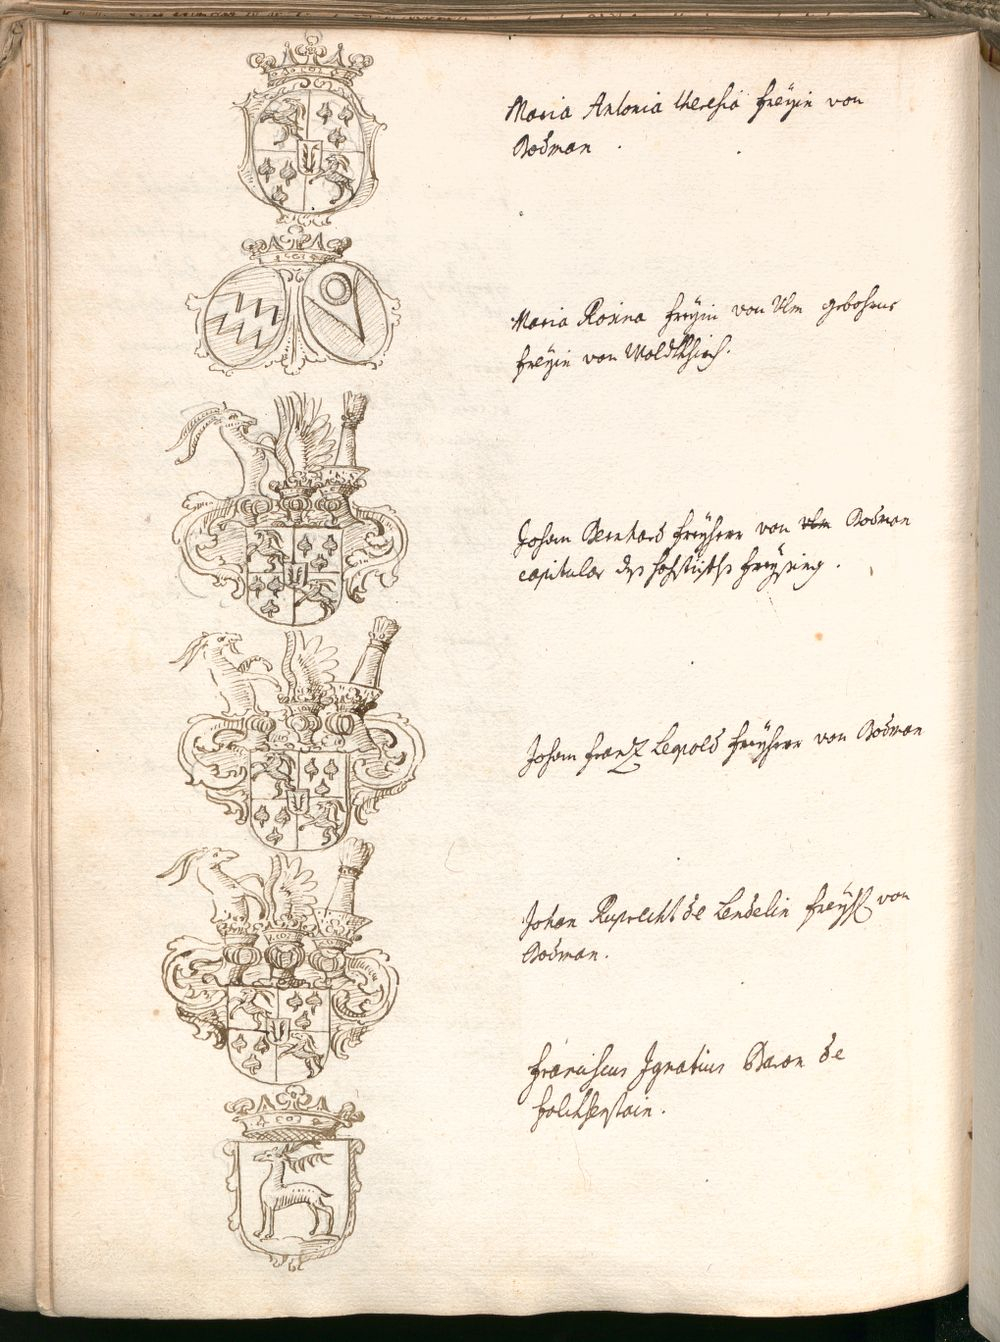 Maria Antonia theresia freÿin von
Bodman .
Maria Rosina freÿin von Ulm gebohrne
freÿin von Waldtkhirch.
Johan Bernhard freÿherr von Ulm Bodman
capitular deß hohstiffts freÿsing .
Johan frantz Leopold freÿherr von Bodman
Johan Ruprecht de Lendelin freÿh von
Bodman.
franciscus Ignatius Baron de